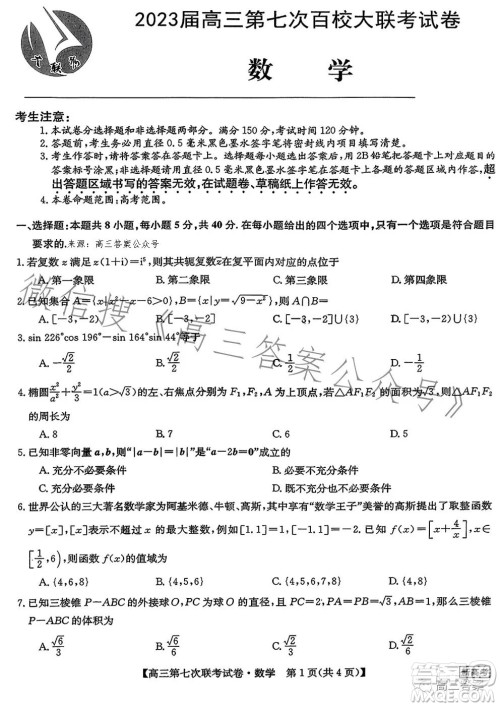 千联易
2023届高三第七次百校大联考试卷
数 学
考生注意:
1. 本试卷分选择题和非选择题两部分。满分150分,考试时间120分钟。
2. 答题前,考生务必用直径0.5毫米黑色墨水签字笔将密封线内项目填写清楚。
3. 考生作答时,请将答案答在答题卡上。选择题每小题选出答案后,用2B铅笔把答题卡上对应题目的
答案标号涂黑;非选择题请用直径0.5毫米黑色墨水签字笔在答题卡上各题的答题区域内作答,超
出答题区域书写的答案无效,在试题卷、草稿纸上作答无效。
4. 本卷命题范围:高考范围。
一、选择题:本题共8小题,每小题5分,共40分。在每小题给出的四个选项中,只有一个选项是符合题目
要求的. 来源:高三答案公众号
1. 若复数z满足z(1+i)=i⁵,则其共轭复数z̅在复平面内对应的点位于
A. 第一象限 B. 第二象限 C. 第三象限 D. 第四象限
2. 已知集合A={x|x²+x-6>0},B={x|y=√(9-x²)},则A∩B=
A. [-3,-2) B. [-3,-2] C. [-3,-2]∪{3} D. [-3,-2)∪{3}
3. sin 226°cos 196°-sin 164°sin 44°等于
A. -√2/2 B. √2/2 C. 1/2 D. -1/2
4. 椭圆x²/a²+y²/3=1(a>√3)的左、右焦点分别为F₁,F₂,A为上顶点,若△AF₁F₂的面积为√3,则△AF₁F₂
的周长为
A. 8 B. 7 C. 6 D. 5
5. 已知非零向量a,b,则"|a-b|=|b|"是"a-2b=0"成立的
A. 充分不必要条件 B. 必要不充分条件
C. 充要条件 D. 既不充分也不必要条件
6. 世界公认的三大著名数学家为阿基米德、牛顿、高斯,其中享有"数学王子"美誉的高斯提出了取整函数
y=[x],[x]表示不超过x的最大整数,例如[1.1]=1,[-1.1]=-2. 已知f(x)=[x+4/x],x∈
[1/2,6),则函数f(x)的值域为
A. {4,6,8} B. {4,5,6} C. {4,5,6,7,8} D. {4,8}
7. 已知三棱锥P-ABC的外接球O,PC为球O的直径,且PC=2,PA=√3,PB=√3,AB=1,那么三棱锥
P-ABC的体积为
A. √6/6 B. √6/3 C. √2/3 D. √2/6
【高三第七次联考试卷·数学 第1页(共4页)】
微信搜《高三答案公众号》
高三答案